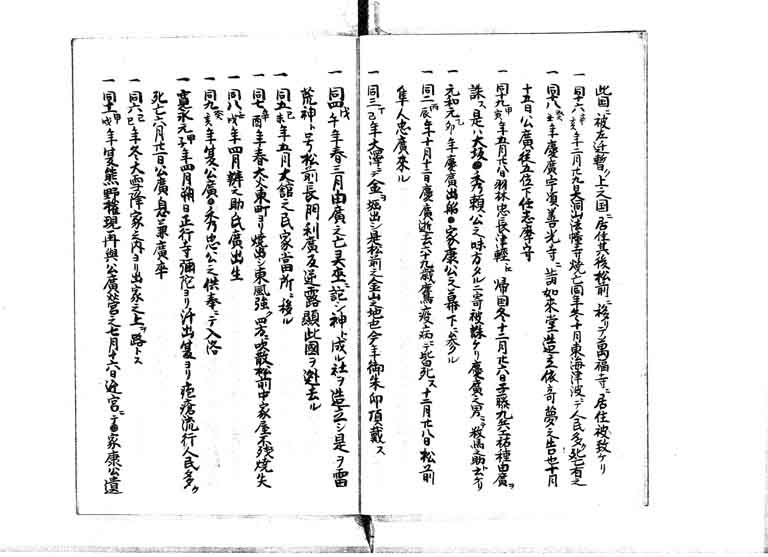 此国ニ被左近暫ク上之国ニ居住其後松前ニ移リテ萬福寺ニ居住被致ケリ
一同十六辛亥年二月廿九日大洞山法幢寺焼亡同年冬十月東海津波ニテ人民多ク死亡有之
一同十八癸丑年慶廣宇須善光寺ニ詣如来堂造立依奇夢之告也十月
十五日公廣従五位下任志摩守
一同十九甲寅年五月廿八日羽林忠長津軽ヨリ帰国冬十二月廿六日工藤九兵エ祐種由廣ヲ
誅ス是ハ大坂ノ秀頼公之味方タルニ寄被誅ケリ慶廣之男ニテ数馬之助ト云ケリ
一元和元乙卯年慶廣出船家康公之幕下ニ参ル
一同二丙辰年十月十二日慶廣逝去六十九歳鷹疫病ニテ皆死ス十二月廿八日松前
隼人忠廣来ル
一同三丁巳年大澤ニテ金ヲ堀出シ是松前之金山之始也今年御朱印頂戴ス
一同四戊午年春三月由廣之亡美巫ニ記シ神ト成ル社ヲ造立シ是ヲ雷
荒神ト号松前長門利廣反逆露顕此國ヲ逃去ル
一同五己未年五月大舘之民家當所ニ移ル
一同七辛酉年春大火東町ヨリ焼出シ東風強ク四方ニ吹散松前中家屋不残焼失
一同八壬戌年四月辨之助氏廣出生
一同九癸亥年夏公廣秀忠公之供奉ニテ入洛
一寛永元甲子年四月朔日正行寺彌陀ヨリ汗出夏ヨリ疱瘡流行人民多ク
死亡六月廿一日公廣息兼廣卒
一同六己巳年冬大雪降家之内ヨリ出家之上ヲ路トス
一同十一甲戌年夏熊野権現再興公廣営之七月十六日近宮ニ於家康公遺